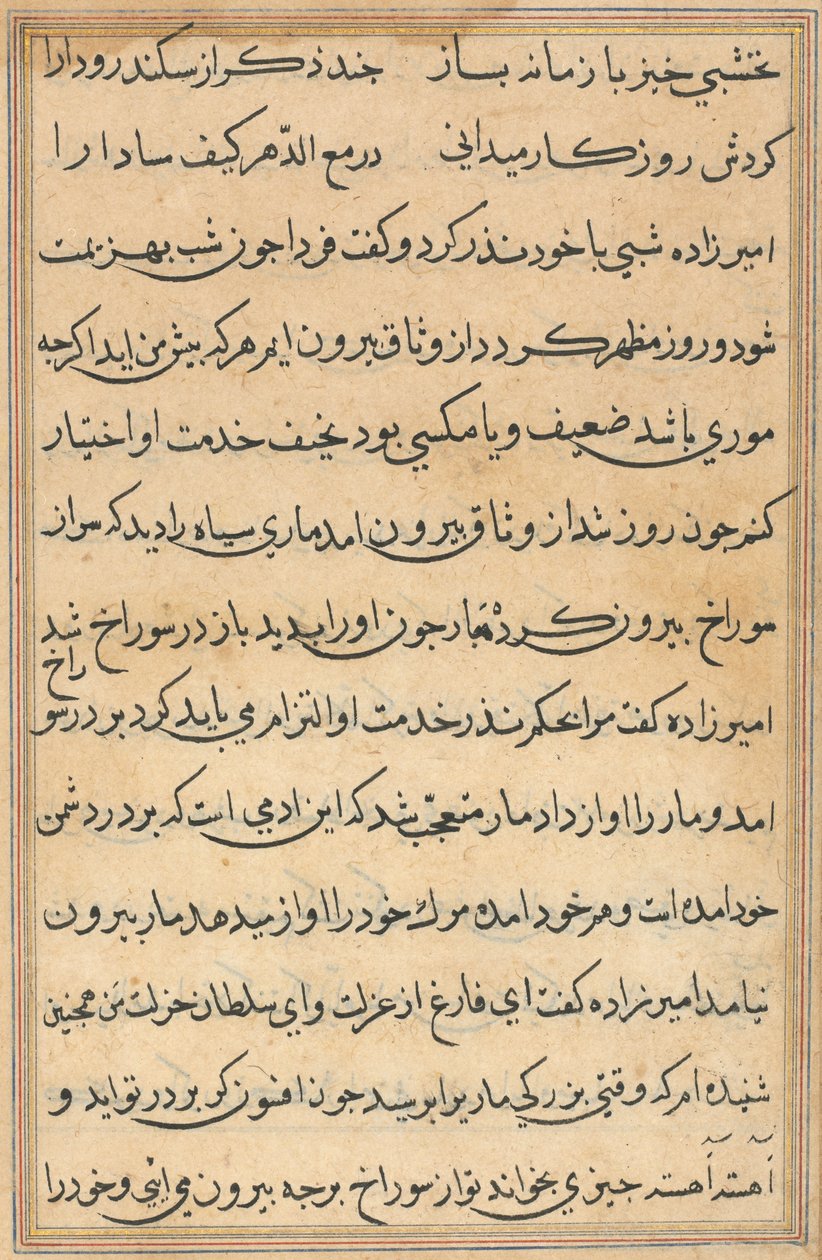 نخشبي خيز با زمانه بساز جند ذكر از سكندر و دارا
كردش روز كار ميداني در مع الدّهر كيف ما دارا
امير زاده شبي با خود نذر كرد و كفت فردا جون شب بهزيمت
شود و روز مظهر كردد از وثاق بيرون ايم هر كه بيش من ايد اكرجه
موري باشد ضعيف و يا مكسي بود نحيف خدمت او اختيار
كنم جون روز شد از وثاق بيرون امد ماري سياه را ديد كه سر از
سوراخ بيرون كرده مار جون او را بديد باز در سوراخ شد
امير زاده كفت مرا بحكم نذر خدمت او التزام مي بايد كرد بر در سوراخ
امد و مار را اواز داد مار متعجّب شد كه اين ادمي است كه بر در دشمن
خود امده است و هم خود امده مرك خود را اواز ميدهد مار بيرون
نيامد امير زاده كفت اي فارغ از عزلت و اي سلطان خزلت من همجنين
شنيده ام كه وقتي بزركي مار يرا برسيد جون افسون كر بر در تو ايد و
آهسته آهسته جيزي بخواند تو از سوراخ برجه بيرون مي ائي و خود را